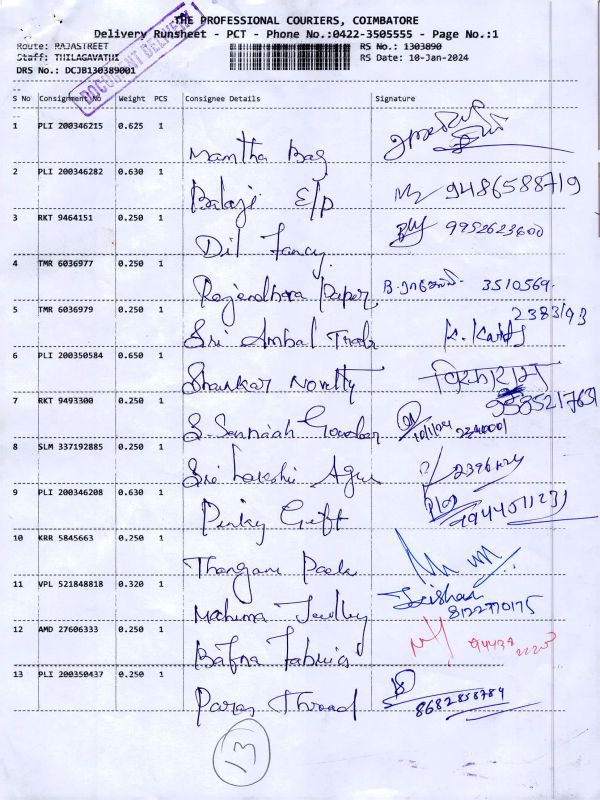 THE PROFESSIONAL COURIERS, COIMBATORE
Delivery Runsheet - PCT - Phone No.:0422-3505555 - Page No.:1
Route: RAJASTREET RS No.: 1303890
Staff: THILAGAVATHI RS Date: 10-Jan-2024
DRS No.: DCJB130389001
DOCUMENT DELIVERY
S No Consignment No Weight PCS Consignee Details Signature
1 PLI 200346215 0.625 1 Mamtha Bag
2 PLI 200346282 0.630 1 Balaji E/p 9486588719
3 RKT 9464151 0.250 1 Dil Fancy 9952623600
4 TMR 6036977 0.250 1 Rajendhora Paper 3510569
5 TMR 6036979 0.250 1 Sri Ambal Trade 2383193
6 PLI 200350584 0.650 1 Shankar Novelty
7 RKT 9493300 0.250 1 10/1/24
8 SLM 337192885 0.250 1 Sri 2396424
9 PLI 200346208 0.630 1 Pinky Gift 9944071231
10 KRR 5845663 0.250 1
11 VPL 521848818 0.320 1 Mahima 8122770175
12 AMD 27606333 0.250 1 Bafna Fabrics
13 PLI 200350437 0.250 1 Paras Thread 8682858784
13